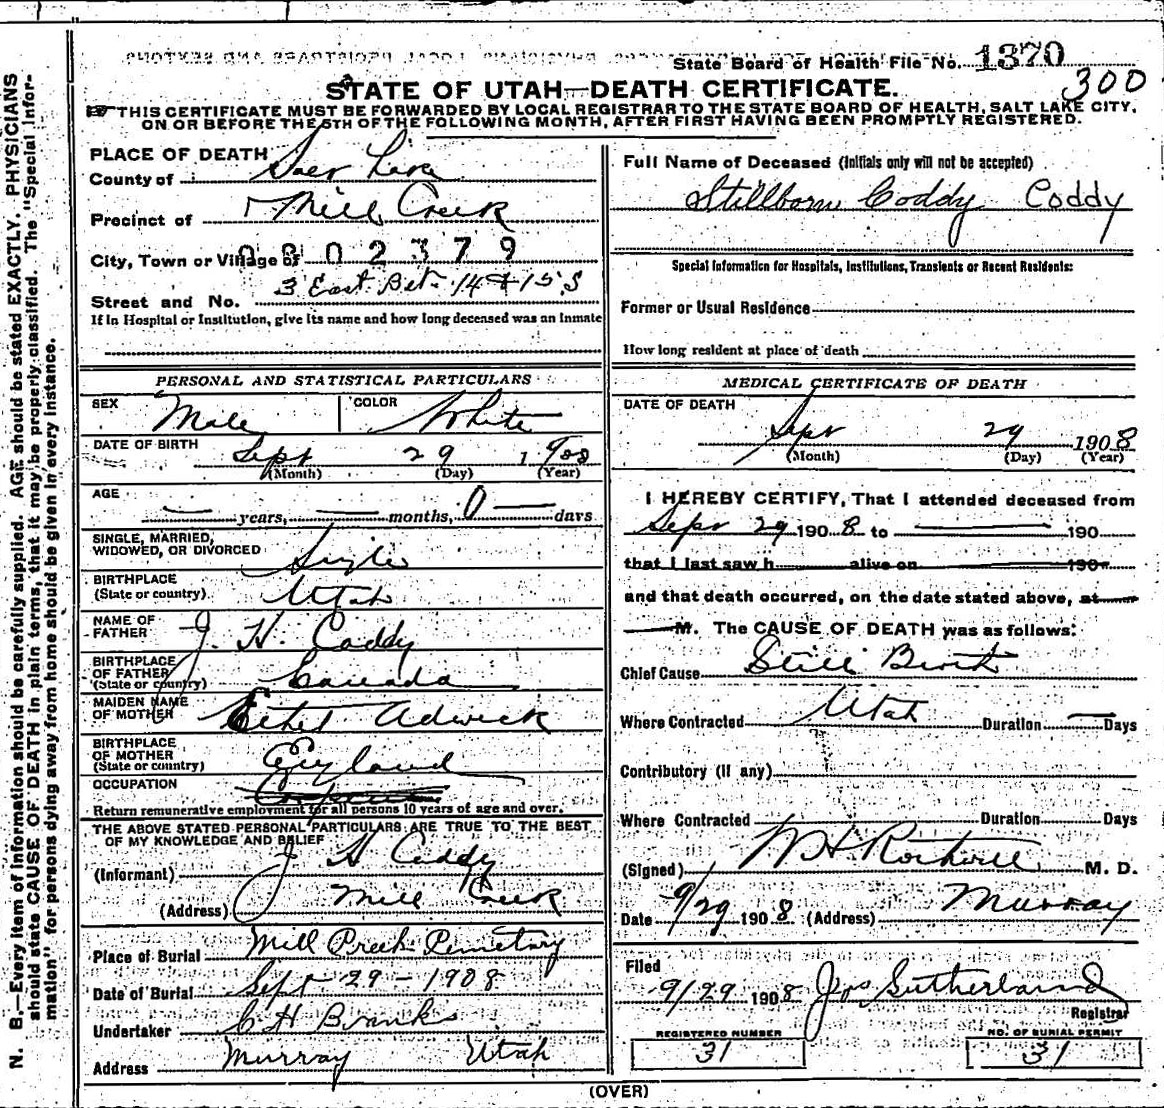 State Board of Health File No. 1370
300
STATE OF UTAH—DEATH CERTIFICATE.
THIS CERTIFICATE MUST BE FORWARDED BY LOCAL REGISTRAR TO THE STATE BOARD OF HEALTH, SALT LAKE CITY,
ON OR BEFORE THE 5TH OF THE FOLLOWING MONTH, AFTER FIRST HAVING BEEN PROMPTLY REGISTERED.
N. B.—Every item of information should be carefully supplied. AGE should be stated EXACTLY. PHYSICIANS
should state CAUSE OF DEATH in plain terms, that it may be properly classified. The "Special Infor-
mation" for persons dying away from home should be given in every instance.
PLACE OF DEATH
County of Salt Lake
Precinct of Mill Creek
City, Town or Village of 0802379
Street and No. 3 East Bet. 14 & 15 S
If in Hospital or Institution, give its name and how long deceased was an inmate
PERSONAL AND STATISTICAL PARTICULARS
SEX Male COLOR White
DATE OF BIRTH Sept 29 1908
(Month) (Day) (Year)
AGE — years, — months, 0 — days
SINGLE, MARRIED,
WIDOWED, OR DIVORCED Single
BIRTHPLACE
(State or country) Utah
NAME OF
FATHER J. H. Coddy
BIRTHPLACE
OF FATHER
(State or country) Canada
MAIDEN NAME
OF MOTHER Ethel Adwick
BIRTHPLACE
OF MOTHER
(State or country) England
OCCUPATION
Return remunerative employment for all persons 10 years of age and over.
THE ABOVE STATED PERSONAL PARTICULARS ARE TRUE TO THE BEST
OF MY KNOWLEDGE AND BELIEF
(Informant) J H Coddy
(Address) Mill Creek
Place of Burial Mill Creek Cemetary
Date of Burial Sept 29 - 1908
Undertaker C H Branks
Address Murray Utah
Full Name of Deceased (Initials only will not be accepted)
Stillborn Coddy Coddy
Special Information for Hospitals, Institutions, Transients or Recent Residents:
Former or Usual Residence
How long resident at place of death
MEDICAL CERTIFICATE OF DEATH
DATE OF DEATH
Sept 29 1908
(Month) (Day) (Year)
I HEREBY CERTIFY, That I attended deceased from
Sept 29 1908 to — 190
that I last saw h alive on 190
and that death occurred, on the date stated above, at
M. The CAUSE OF DEATH was as follows:
Chief Cause Still Birth
Where Contracted Utah Duration — Days
Contributory (if any)
Where Contracted Duration Days
(Signed) M. D.
Date 9/29 1908 (Address) Murray
Filed
9/29 1908 Jos Sutherland
Registrar
REGISTERED NUMBER
31
NO. OF BURIAL PERMIT
31
(OVER)